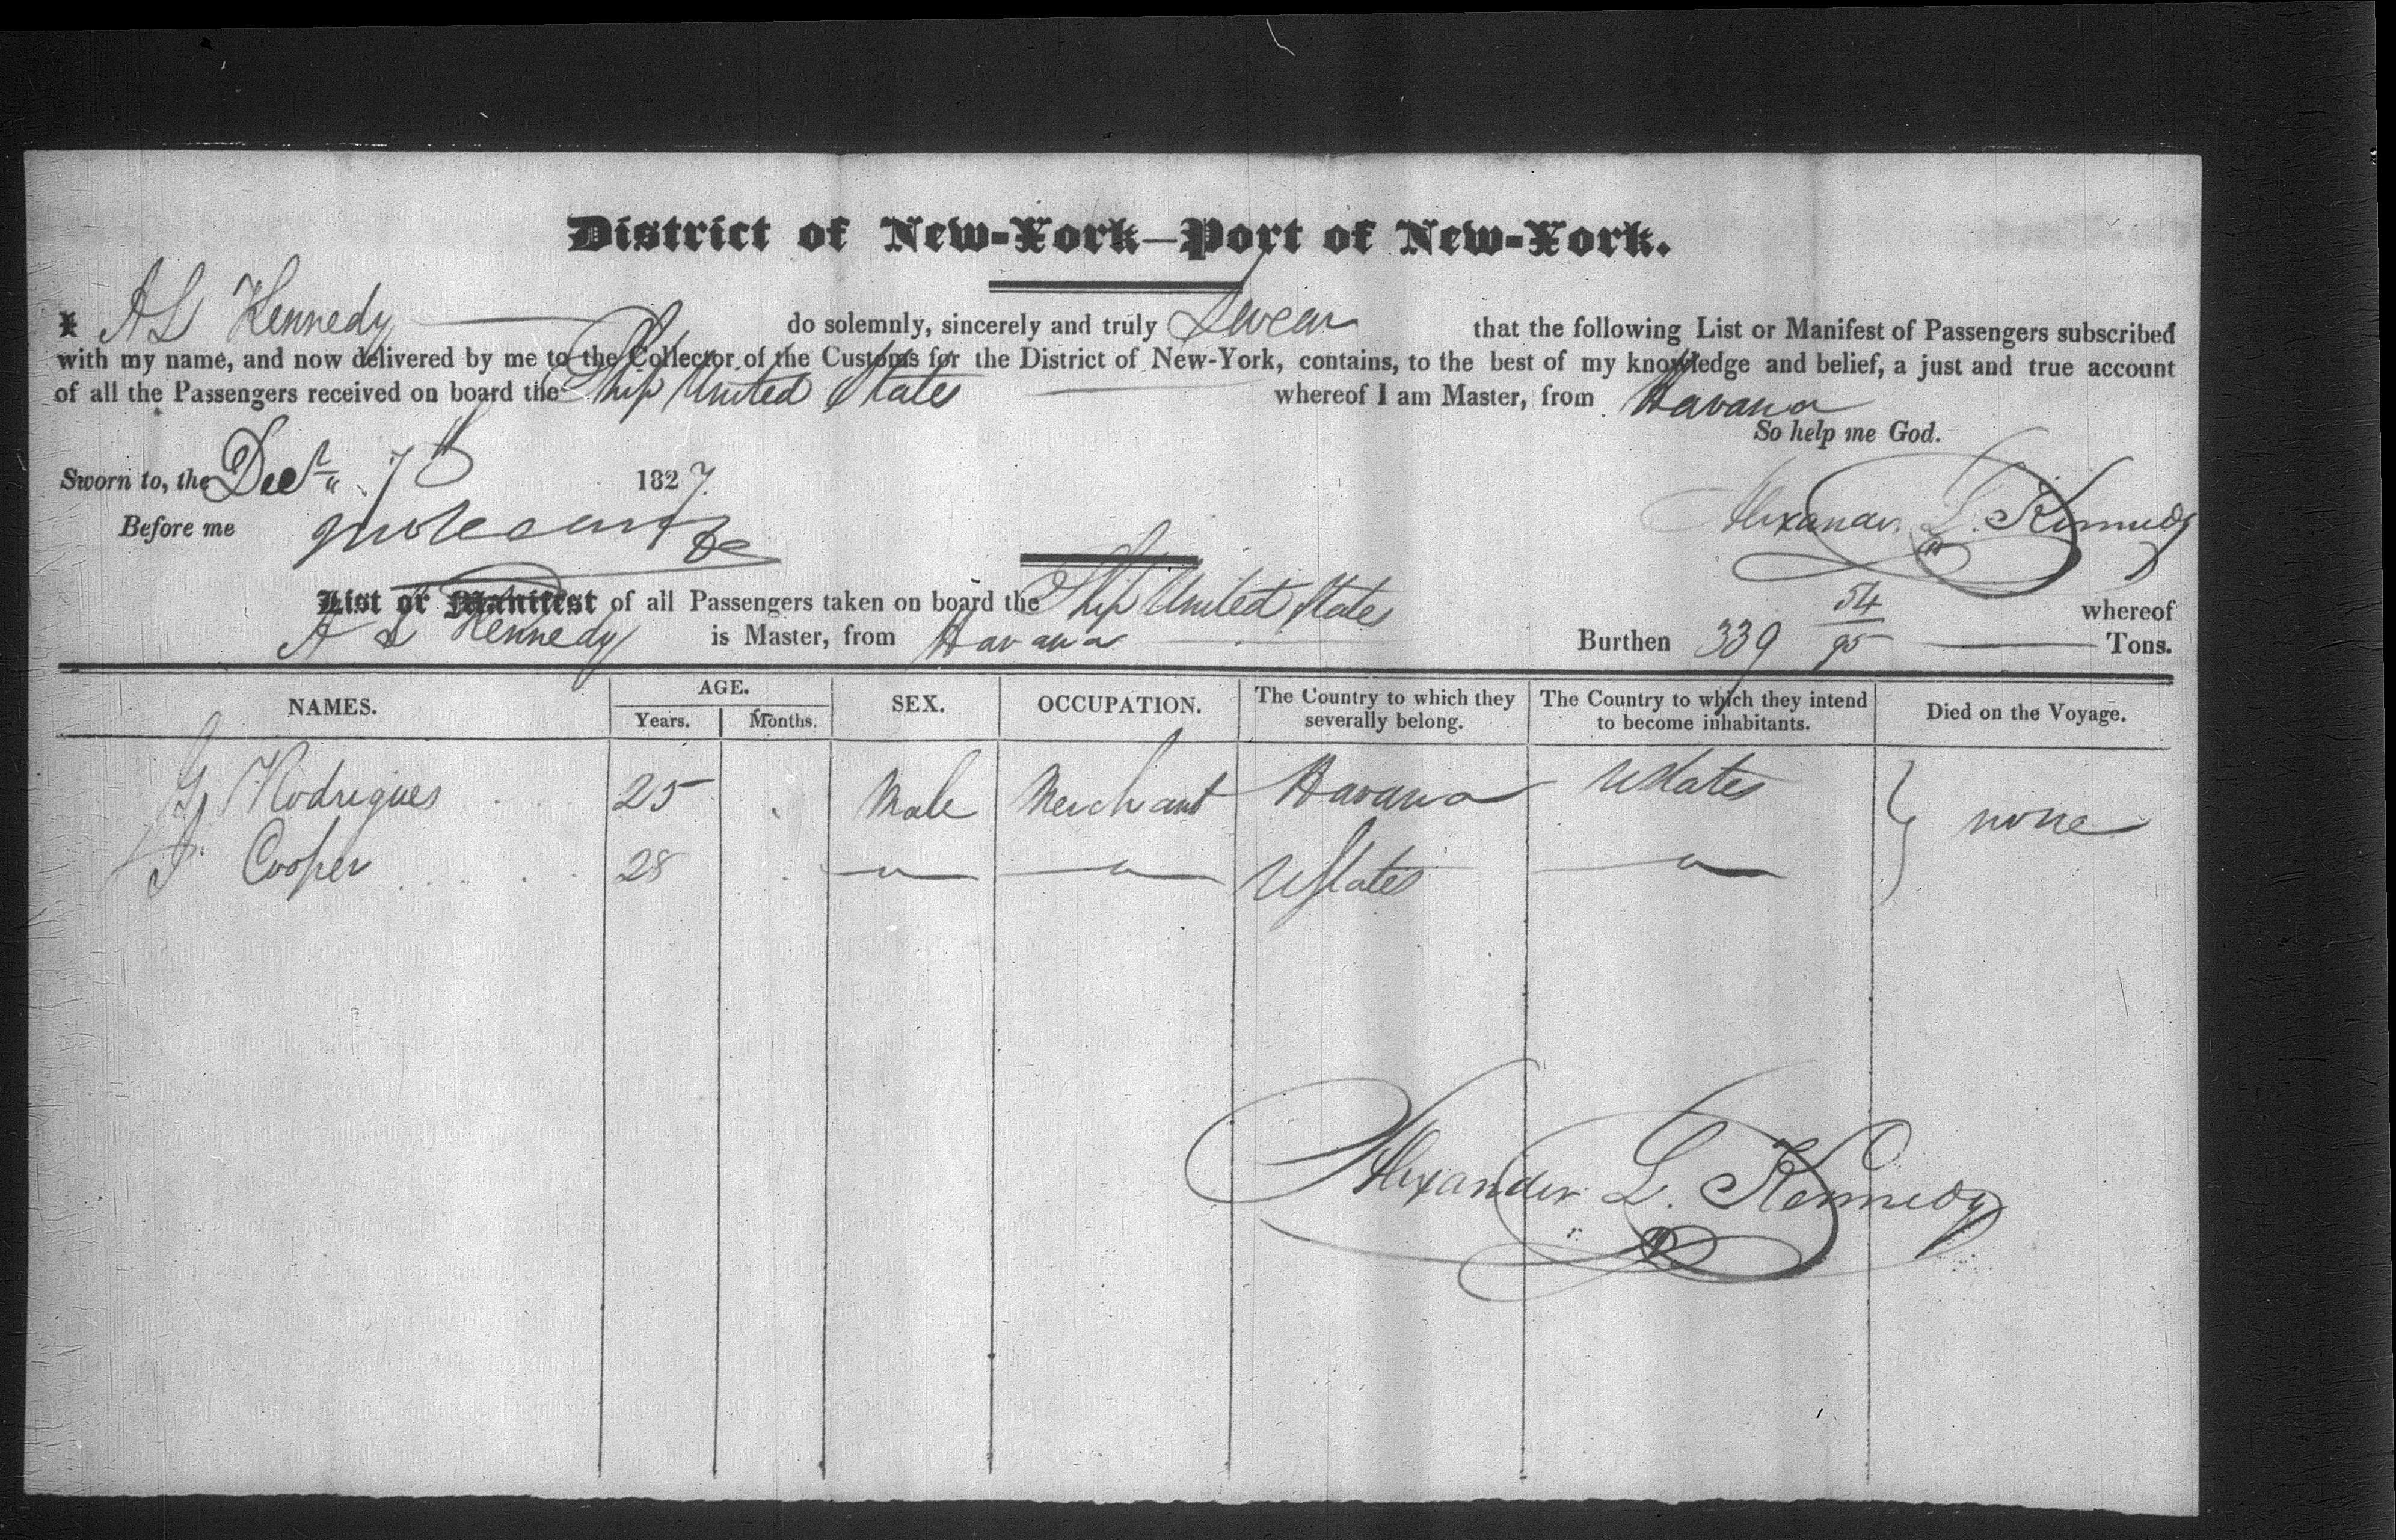 District of New-York—Port of New-York.
I A L Kennedy do solemnly, sincerely and truly Swear that the following List or Manifest of Passengers subscribed
with my name, and now delivered by me to the Collector of the Customs for the District of New-York, contains, to the best of my knowledge and belief, a just and true account
of all the Passengers received on board the Ship United States whereof I am Master, from Havana
So help me God.
Sworn to, the Decr 7th 1827
Alexander L. Kennedy
Before me
List or Manifest of all Passengers taken on board the Ship United States whereof
A L Kennedy is Master, from Havana Burthen 339 54/95 Tons.
NAMES. AGE. Years. Months. SEX. OCCUPATION. The Country to which they severally belong. The Country to which they intend to become inhabitants. Died on the Voyage.
Rodrigues 25 Male Merchant Havana UStates none
J. Cooper 28 " " UStates "
Alexander L. Kennedy